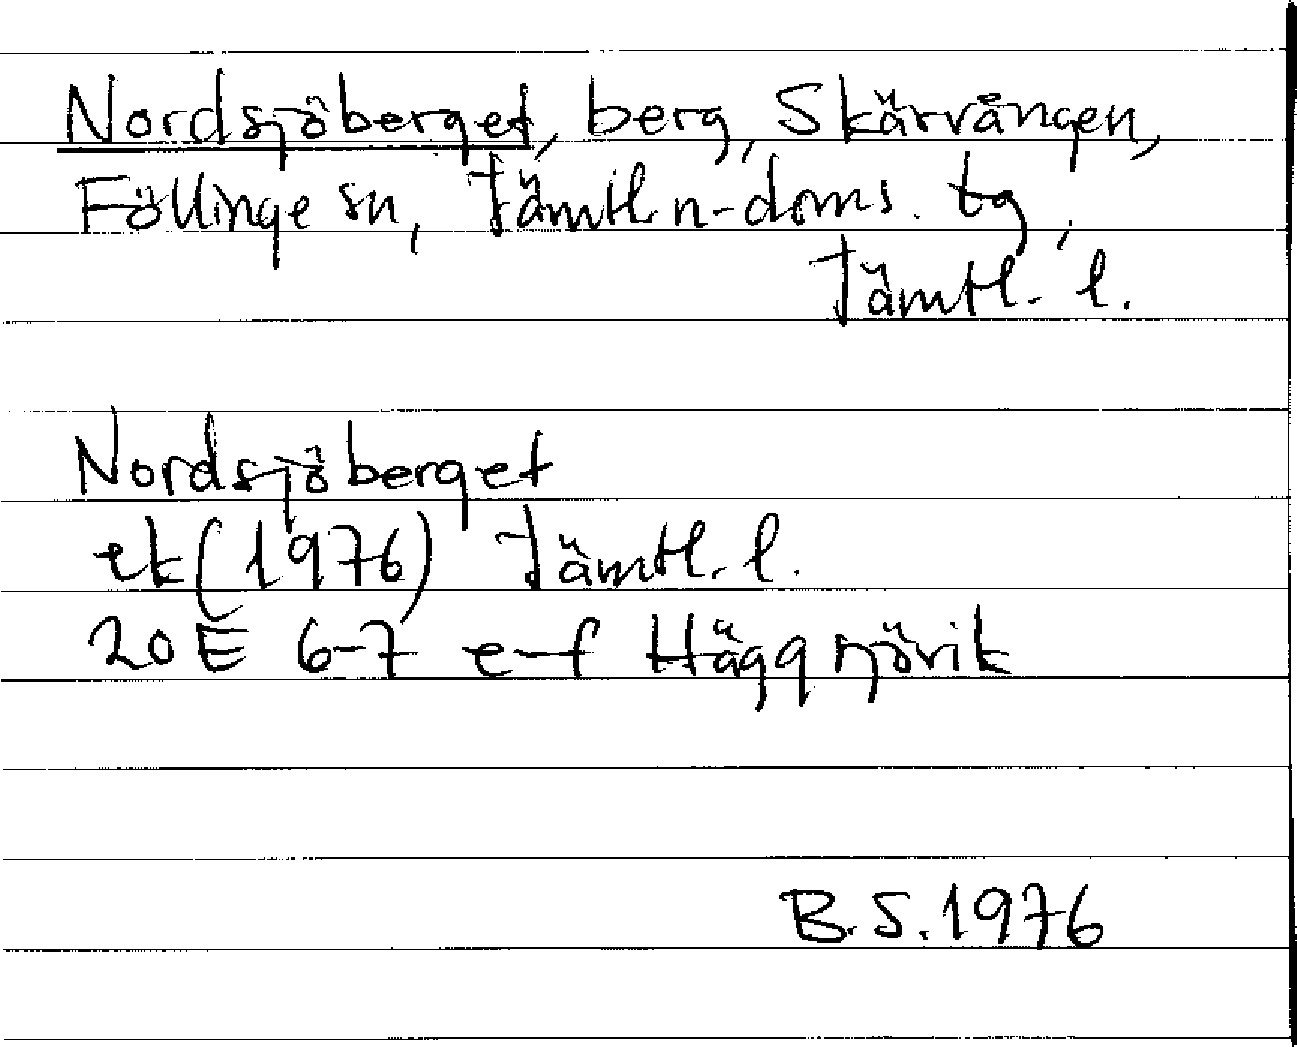 Nordsjöberget, berg, Skärvången,
Föllinge sn, Jämtl. n-doms. tg,
Jämtl. l.
Nordsjöberget
ek (1976) Jämtl. l.
20E 6-7 e-f Häggsjövik
B.S. 1976